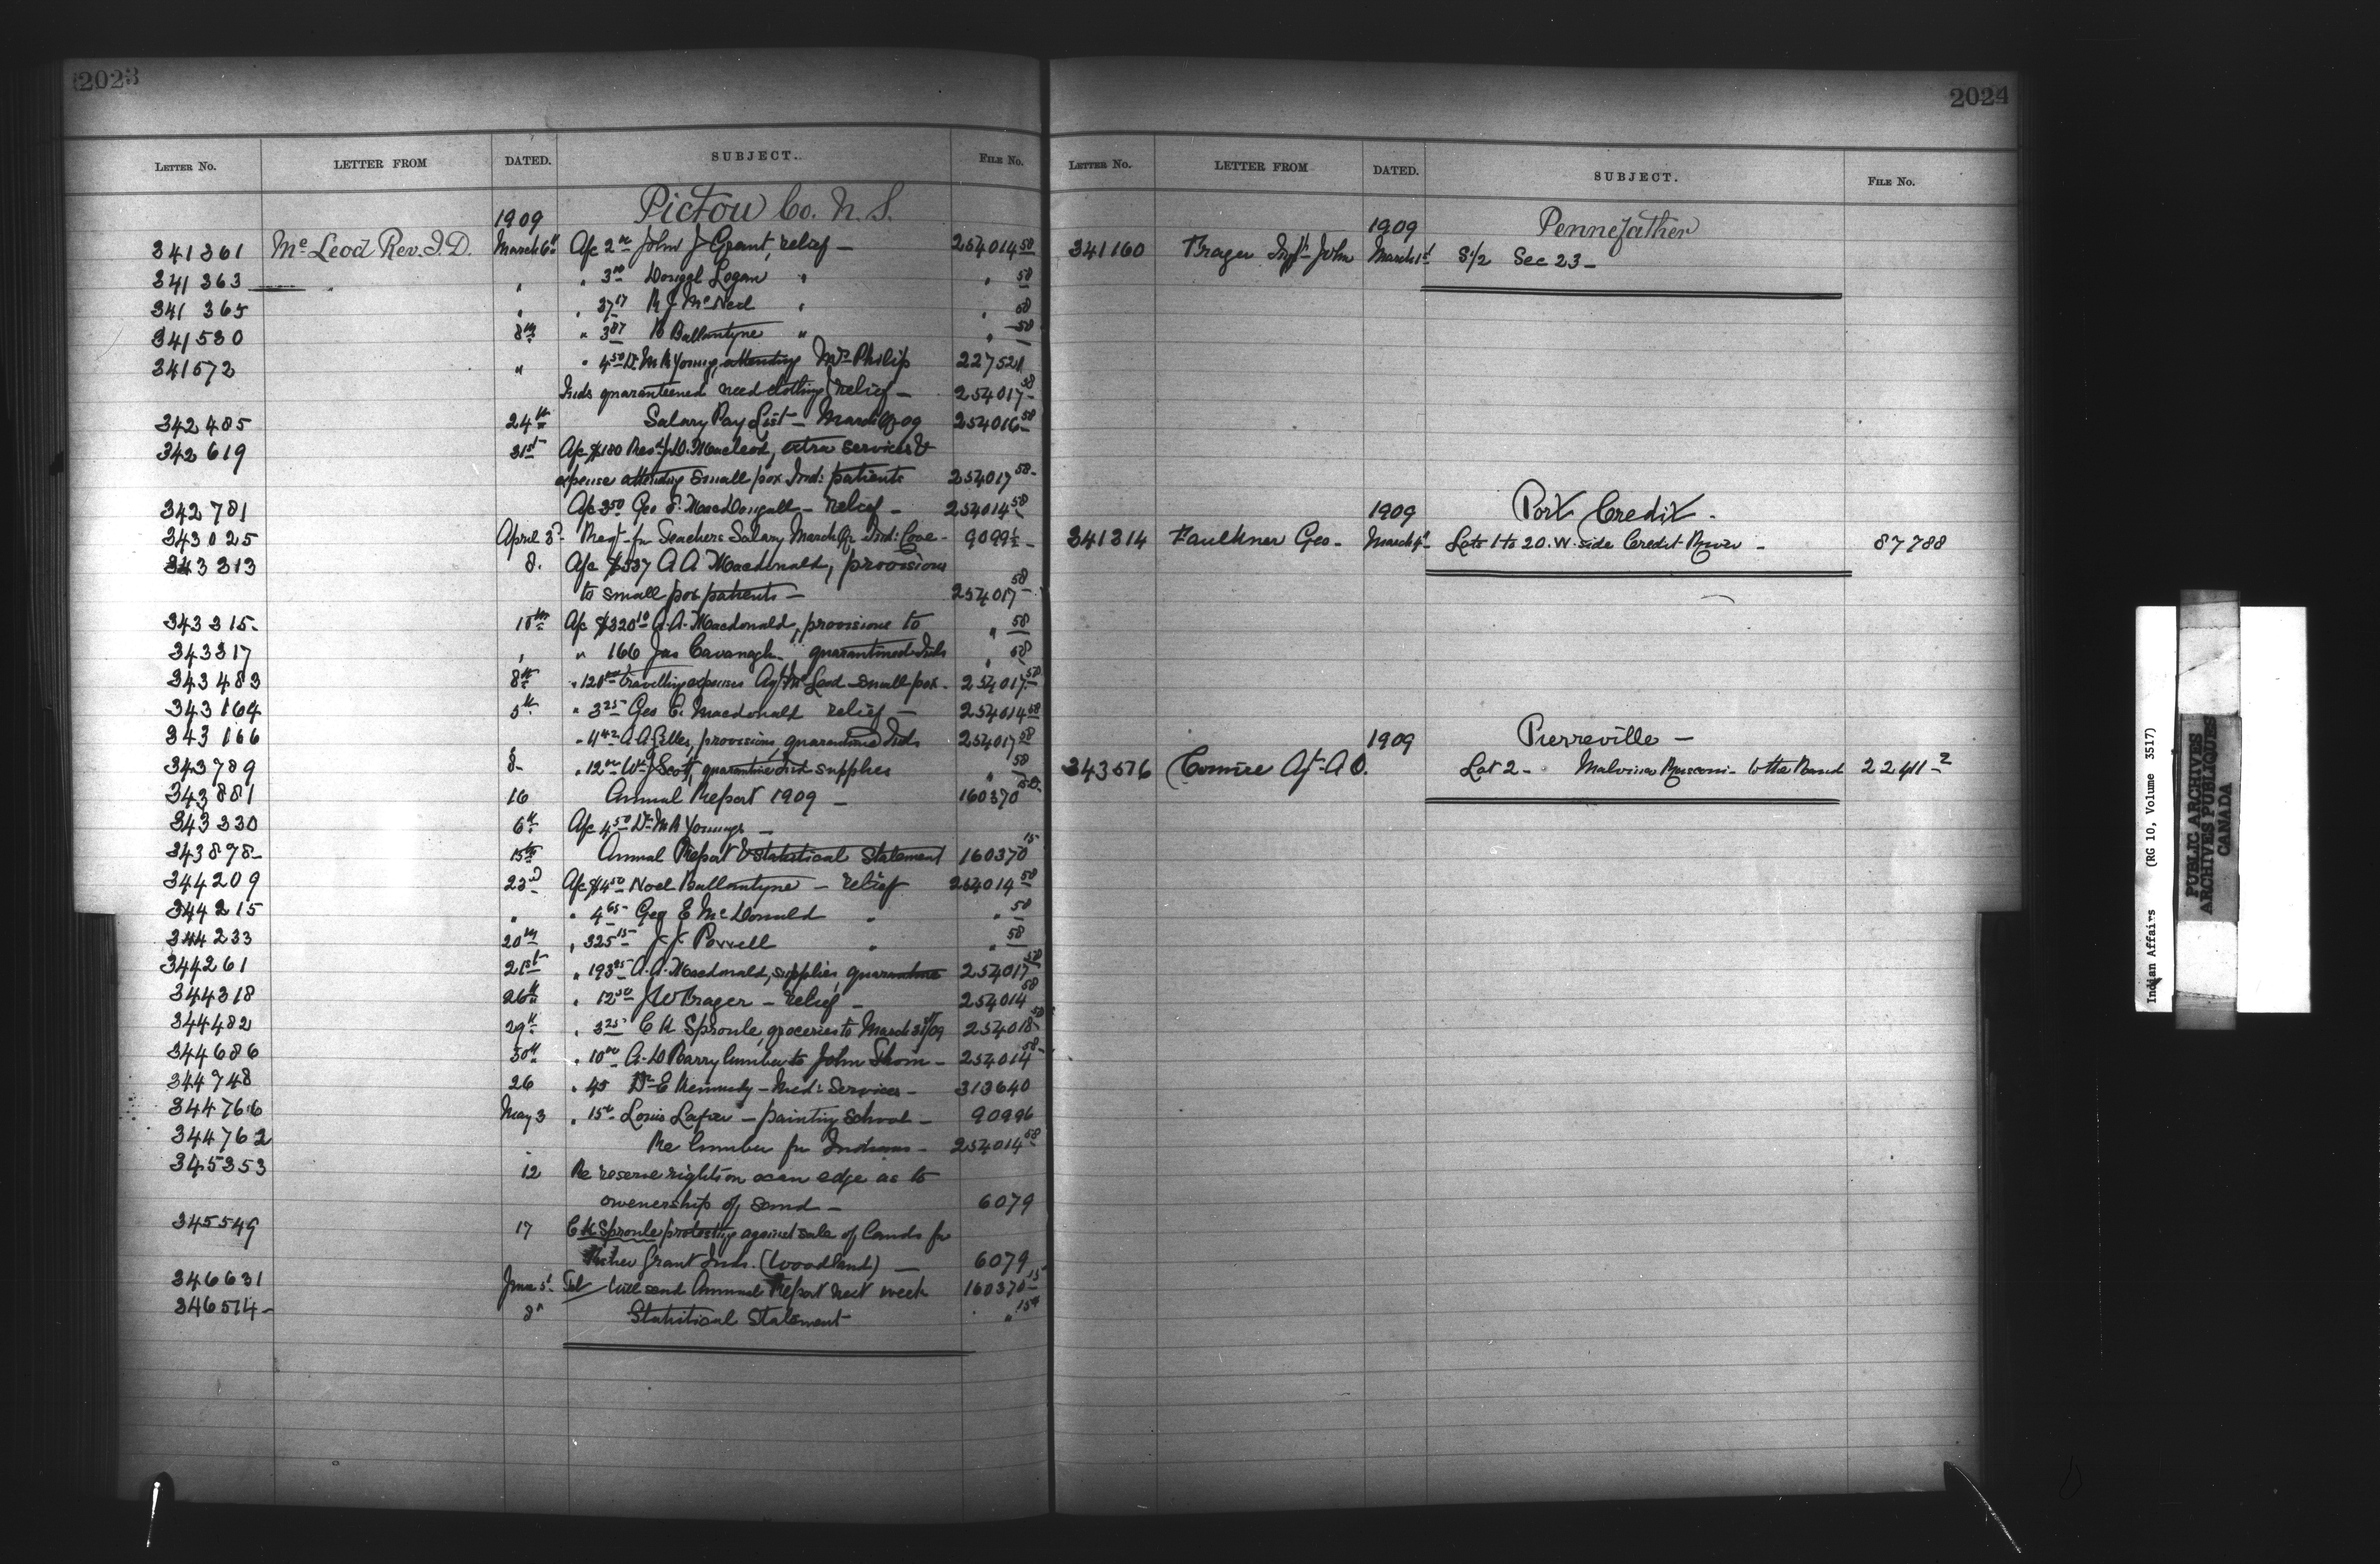 2023
LETTER No. LETTER FROM DATED. SUBJECT. FILE No.
1909 Pictou Co. N. S.
341361 McLeod Rev. J. D. March 6th A/c 2.00 John J Grant, relief — 254014 58
341363 " " 3.00 Dougal Logan " " 58
341365 " " 3717 R J McNeil " " 58
341530 8th " 387 B Ballantyne " " 58
341572 " " 4.50 Dr M R Young, attending Mrs Philip 227521
Inds quaranteened need clothing relief — 254017 58
342485 24th Salary Pay List — March Qr 09 254016 58
342619 31st A/c $180 Rev J.D. Macleod, extra services &
expense attending small pox Ind: patients 254017 58
342781 A/c 3.50 Geo E. MacDougall — relief — 254014 58
343025 April 3rd Req't for Teachers Salary March Qr Ind: Cove — 9099½
343313 8. A/c $337 A A Macdonald, provisions
to small pox patients — 254017 58
343315 15th A/c $320.10 A. A. Macdonald, provisions to " 58
343317 " " 166 Jas Cavanagh " quarantined Inds " 58
343483 8th " 120.00 travelling expenses Agt McLeod small pox — 254017 58
343164 5th " 3.25 Geo E. Macdonald relief — 254014 58
343166 " 11.42 A A Gilles, provisions, quarantined Inds 254017 58
343789 8 " 12.00 W J Scott, quarantine Ind supplies " 58
343881 16 Annual Report 1909 — 160370
343330 6th A/c 4.50 Dr M R Young —
343898 15th Annual Report & Statistical Statement 160370 15
344209 23rd A/c $4.50 Noel Ballantyne — relief 254014 58
344215 " " 4.65 Geo E McDonald " " 58
344233 20th " 325.15 J. J. Powell " " 58
344261 21st " 193.95 A. A. Macdonald, supplies, quarantine 254017 58
344318 26th " 12.50 J W Fraser — relief — 254014 58
344482 29th " 3.25 C H Sproule, groceries to March 31st/09 254018 58
344686 30th " 10.00 A. D Barry lumber to John Thom — 254014 58
344748 26 " 45 Dr E Kennedy — Med: Services — 313640
344766 May 3 " 15.00 Louis — painting school — 90996
344762 " Re lumber for Indians — 254014 58
345353 12 Re reserve rights on ocean edge as to
ownership of sand — 6079
345549 17 C H Sproule protesting against sale of lands for
Fisher Grant Inds. (Woodland) — 6079
346631 June 5th Tel — Will send Annual Report next week 160370 15
346514 — 8th Statistical Statement " 15
2024
LETTER No. LETTER FROM DATED. SUBJECT. FILE No.
1909 Pennefather
341160 Frazer John March 1st S½ Sec 23 —
1909 Port Credit —
341314 Faulkner Geo — March 4th Lots 1 to 20. W. side Credit River — 87788
1909 Pierreville —
343576 Comire Agt A O. Lot 2 — Malvina — to the Band 22411-2
Indian Affairs (RG 10, Volume 3517)
PUBLIC ARCHIVES
ARCHIVES PUBLIQUES
CANADA